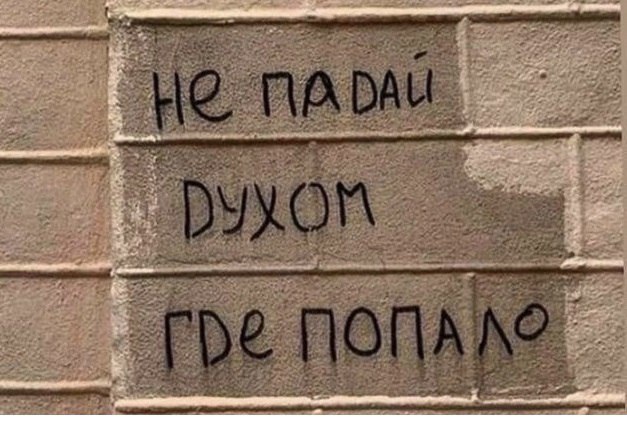 не падай
духом
где попало